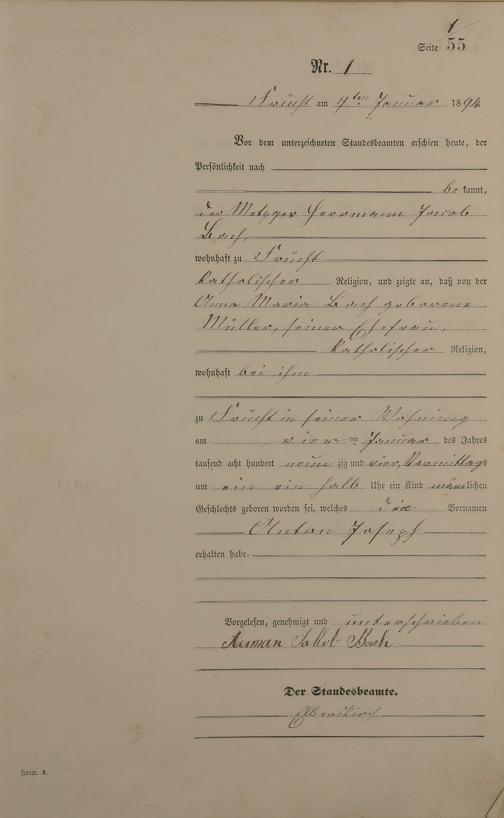 1
Seite 55
Nr. 1
Frücht am 9ten Januar 1894
Vor dem unterzeichneten Standesbeamten erschien heute, der
Persönlichkeit nach
be kannt,
der Metzger Herrmann Jacob
Bach,
wohnhaft zu Frücht
katholischer Religion, und zeigte an, daß von der
Anna Maria Bach geborene
Müller, seiner Ehefrau,
katholischer Religion,
wohnhaft bei ihm
zu Frücht in seiner Wohnung
am vier ten Januar des Jahres
tausend acht hundert neun zig und vier, Vormittags
um ein ein halb Uhr ein Kind männlichen
Geschlechts geboren worden sei, welches die Vornamen
Anton Joseph
erhalten habe.
Vorgelesen, genehmigt und unterschrieben
Jakob
Der Standesbeamte.
Form. A.